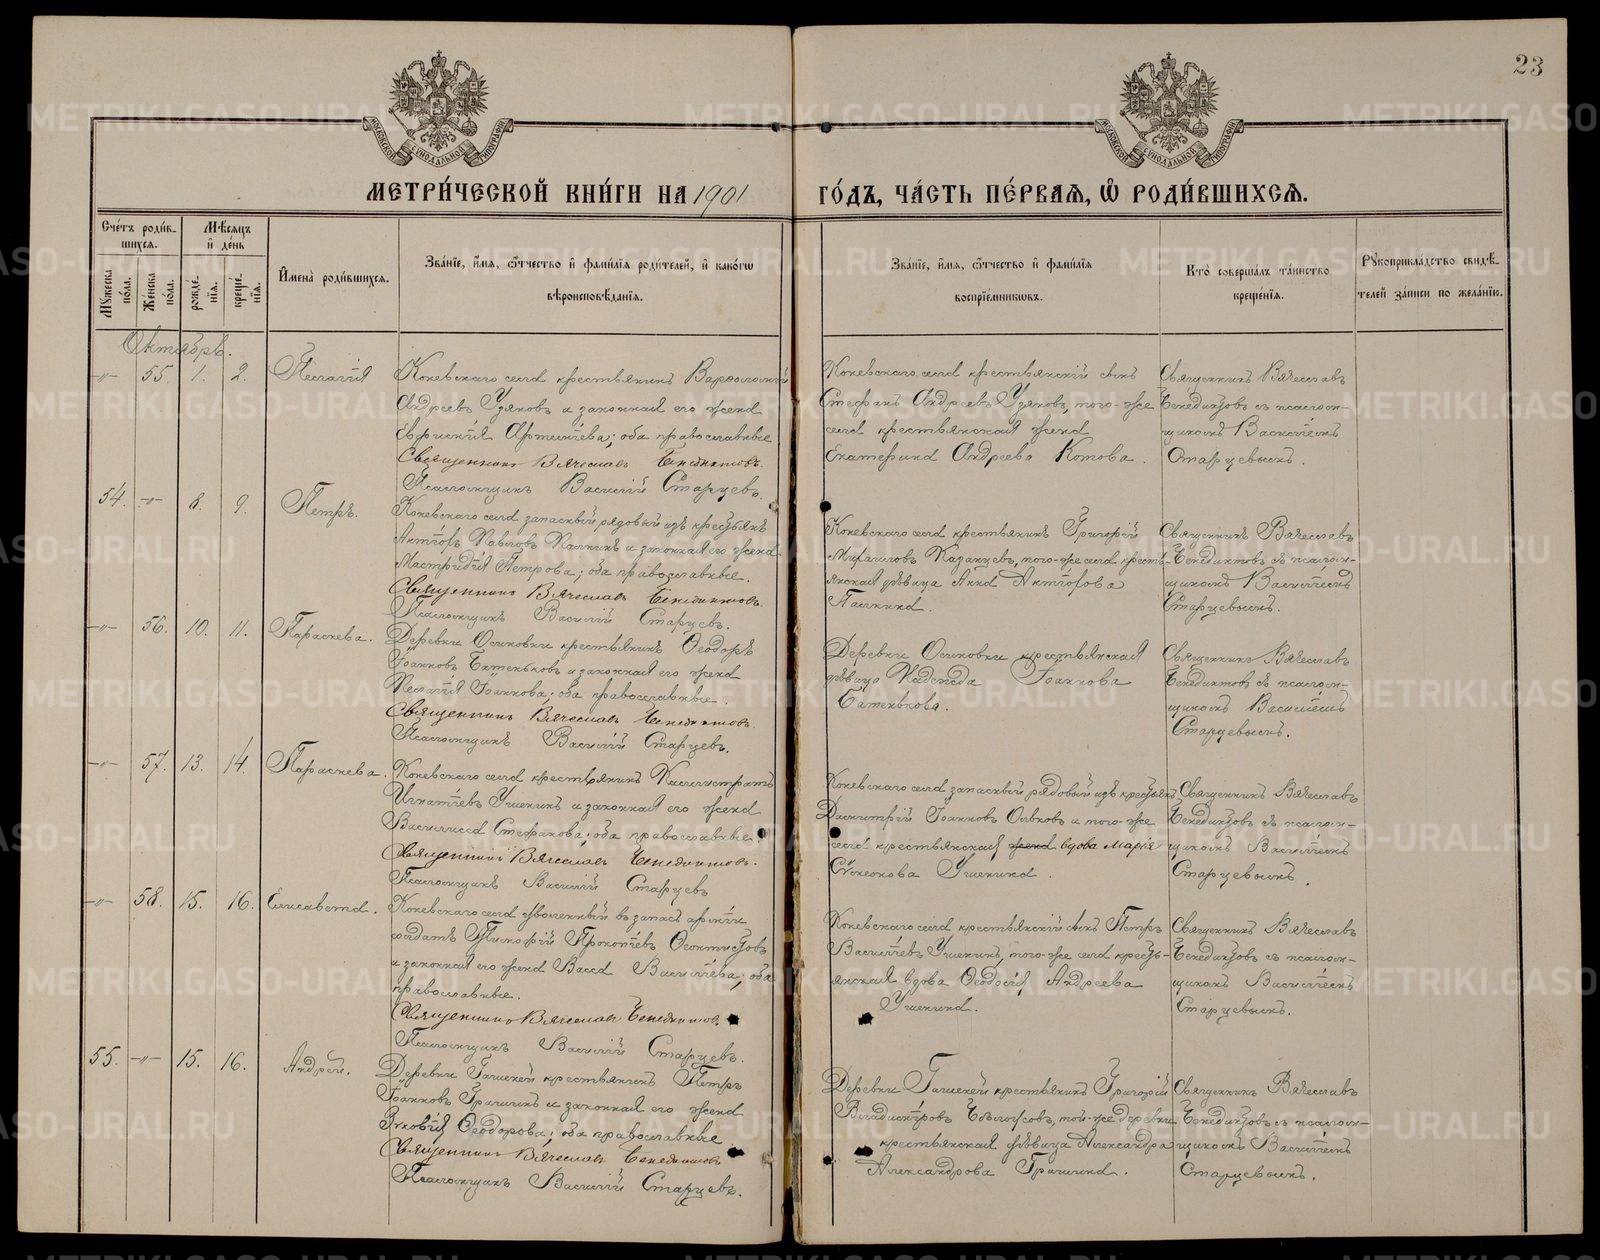 23
МЕТРИ́ЧЕСКОЙ КНИ́ГИ НА 1901 ГО́ДЪ, ЧА́СТЬ ПЕ́РВАЯ, Ѡ РОДИ́ВШИХСЯ.
Сче́тъ роди́в-
шихся.
Мѣ́сяцъ
и де́нь
Му́жеска по́ла.
Же́нска по́ла.
рожде́нія.
креще́нія.
Имена̀ роди́вшихся.
Зва́ніе, и́мя, о́тчество и фами́лія роди́телей, и како́гѡ
вѣроисповѣ́данія.
Зва́ніе, и́мя, о́тчество и фами́лія
воспріе́мниковъ.
Кто̀ соверша́лъ та́инство
креще́нія.
Рукоприкла́дство свидѣ́-
телей за́писи по жела́нію.
Октябрь.
-"- 55. 1. 2. Пелагія
Коневскаго села крестьянинъ Варѳоломей
Андреевъ Узяновъ и законная его жена
Евфимія Артемьева; оба православные
Священникъ Вячеславъ Бенедиктовъ.
Псаломщикъ Василій Старцевъ.
Коневскаго села крестьянскій сынъ
Стефанъ Андреевъ Узяновъ, того-же
села крестьянская жена
Екатерина Андреева Котова.
Священникъ Вячеславъ
Бенедиктовъ съ псалом-
щикомъ Василіемъ
Старцевымъ.
54. -"- 8. 9. Петръ.
Коневскаго села запасный рядовой изъ крестьянъ
Павловъ и законная его жена
Петрова; оба православные.
Священникъ Вячеславъ Бенедиктовъ.
Псаломщикъ Василій Старцевъ.
Коневскаго села крестьянинъ Григорій
Михаиловъ Казанцевъ, того-же села кресть-
янская дѣвица Анна
Священникъ Вячеславъ
Бенедиктовъ съ псалом-
щикомъ Василіемъ
Старцевымъ.
-"- 56. 10. 11. Параскева.
Деревни Осиновки крестьянинъ Ѳеодоръ
Іоанновъ Батеньковъ и законная его жена
Пелагія Іоаннова; оба православные.
Священникъ Вячеславъ Бенедиктовъ.
Псаломщикъ Василій Старцевъ.
Деревни Осиновки крестьянская
дѣвица Надежда Іоаннова
Батенькова.
Священникъ Вячеславъ
Бенедиктовъ съ псалом-
щикомъ Василіемъ
Старцевымъ.
-"- 57. 13. 14. Параскева.
Коневскаго села крестьянинъ Каллистратъ
Игнатіевъ Ушенинъ и законная его жена
Василисса Стефанова; оба православные
Священникъ Вячеславъ Бенедиктовъ.
Псаломщикъ Василій Старцевъ
Коневскаго села запасный рядовой изъ крестьянъ
Димитрій Іоанновъ и того-же
села крестьянская жена вдова Марія
Симеонова Ушенина.
Священникъ Вячеславъ
Бенедиктовъ съ псалом-
щикомъ Василіемъ
Старцевымъ.
-"- 58. 15. 16. Елисавета.
Коневскаго села уволенный въ запасъ арміи
солдатъ Тимофій Прокопіевъ Ѳеоктистовъ
и законная его жена Васса Василіева; оба
православные.
Священникъ Вячеславъ Бенедиктовъ
Псаломщикъ Василій Старцевъ.
Коневскаго села крестьянскій сынъ Петръ
Василіевъ Ушенинъ, того-же села кресть-
янская вдова Ѳеодосія Андреева
Ушенина.
Священникъ Вячеславъ
Бенедиктовъ съ псалом-
щикомъ Василіемъ
Старцевымъ.
55. -"- 15. 16. Андрей.
Деревни Гашеней крестьянинъ Петръ
Іоанновъ Гришинъ и законная его жена
Зиновія Ѳеодорова; оба православные
Священникъ Вячеславъ Бенедиктовъ
Псаломщикъ Василій Старцевъ.
Деревни Гашеней крестьянинъ Григорій
Владиміровъ Бѣлоусовъ, той-же деревни
крестьянская дѣвица Александра
Александрова Гришина.
Священникъ Вячеславъ
Бенедиктовъ съ псалом-
щикомъ Василіемъ
Старцевымъ.
METRIKI.GASO-URAL.RU